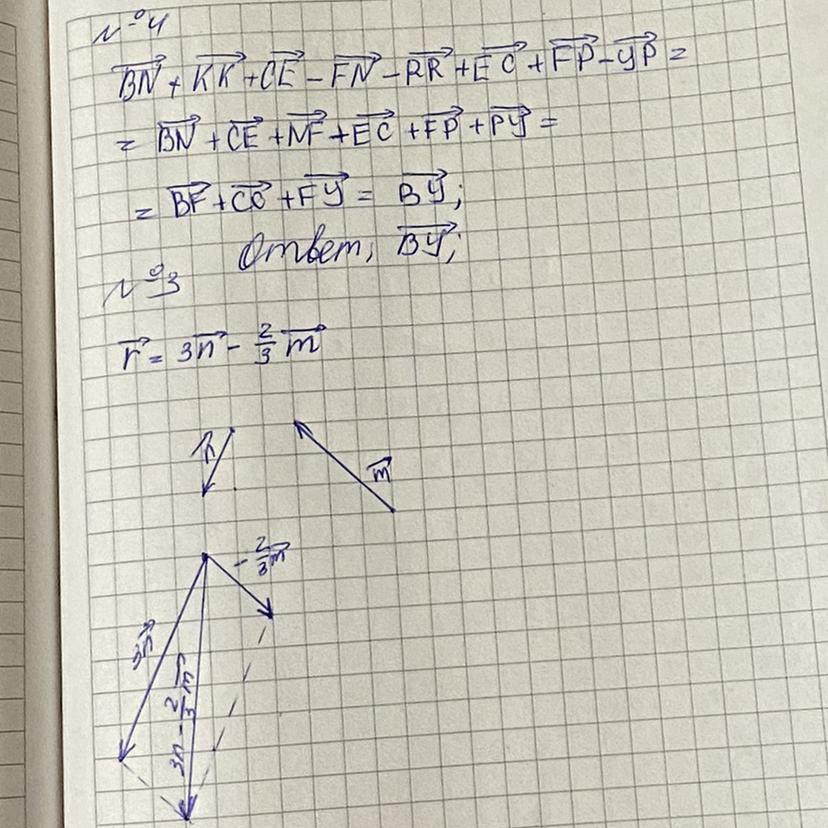 №4
BN + KK + CE - FN - RR + EC + FP - YP =
= BN + CE + NF + EC + FP + PY =
= BF + CC + FY = BY;
Ответ, BY;
№3
r = 3n - 2/3 m
n
m
-2/3 m
3n
3n - 2/3 m